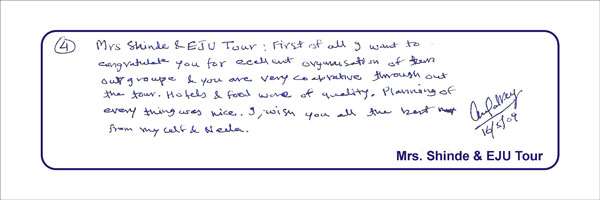 4 Mrs Shinde & EJU Tour : First of all I want to
congratulate you for excellent organisation of
our groupe & you are very cooprative through out
the tour. Hotels & food were of quality. Planning of
every thing was nice. I, wish you all the best
from my self & Neela.
16/5/09
Mrs. Shinde & EJU Tour